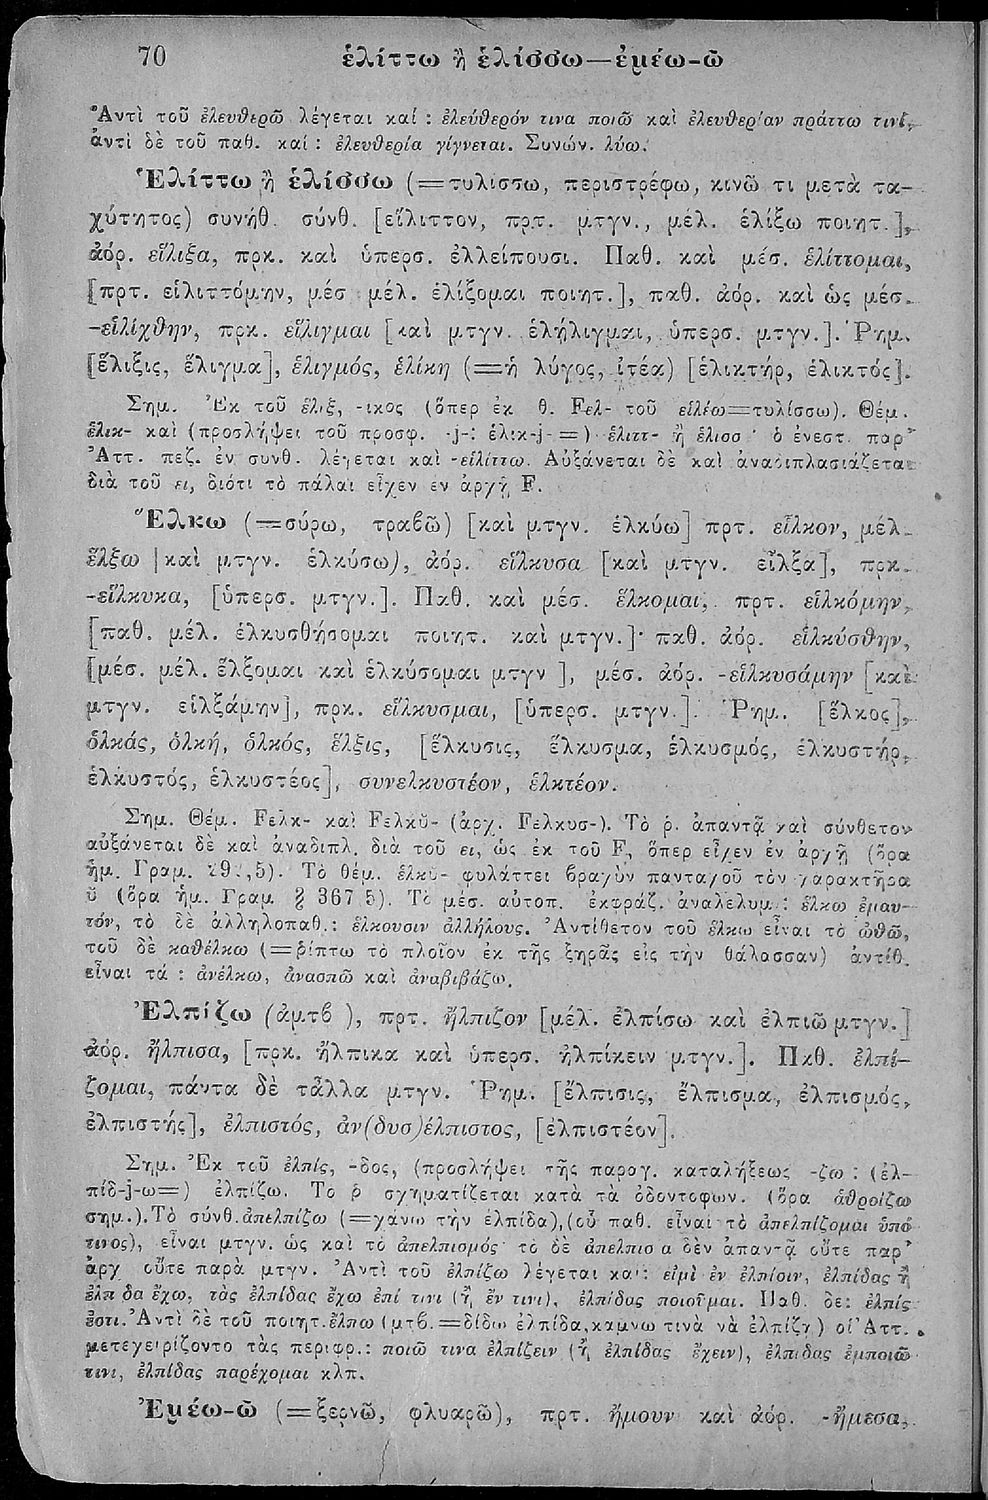 70 ἑλίττω ἢ ἑλίσσω—ἐμέω-ῶ
Ἀντὶ τοῦ ἐλευθερῶ λέγεται καί : ἐλεύθερόν τινα ποιῶ καὶ ἐλευθερίαν πράττω τινί,
ἀντὶ δὲ τοῦ παθ. καί : ἐλευθερία γίγνεται. Συνών. λύω.
Ἑλίττω ἢ ἑλίσσω (=τυλίσσω, περιστρέφω, κινῶ τι μετὰ τα-
χύτητος) συνήθ. σύνθ. [εἵλιττον, πρτ. μτγν., μέλ. ἑλίξω ποιητ.],
ἀόρ. εἵλιξα, πρκ. καὶ ὑπερσ. ἐλλείπουσι. Παθ. καὶ μέσ. ἑλίττομαι,
[πρτ. εἱλιττόμην, μέσ μέλ. ἑλίξομαι ποιητ.], παθ. ἀόρ. καὶ ὡς μέσ.
-εἱλίχθην, πρκ. εἵλιγμαι [καὶ μτγν. ἑλήλιγμαι, ὑπερσ. μτγν.]. Ῥημ.
[ἕλιξις, ἕλιγμα], ἑλιγμός, ἑλίκη (=ἡ λύγος, ἰτέα) [ἑλικτήρ, ἑλικτός].
Σημ. Ἐκ τοῦ ἕλιξ, -ικος (ὅπερ ἐκ θ. Fελ- τοῦ εἰλέω=τυλίσσω). Θέμ.
ἑλικ- καὶ (προσλήψει τοῦ προσφ. -j-: ἑλικ-j- =) ἑλιττ- ἢ ἑλισσ · ὁ ἐνεστ. παρ'
Ἀττ. πεζ. ἐν συνθ. λέγεται καὶ -εἱλίττω. Αὐξάνεται δὲ καὶ ἀναδιπλασιάζεται
διὰ τοῦ ει, διότι τὸ πάλαι εἶχεν ἐν ἀρχῇ F.
Ἕλκω (=σύρω, τραβῶ) [καὶ μτγν. ἑλκύω] πρτ. εἷλκον, μέλ.
ἕλξω [καὶ μτγν. ἑλκύσω), ἀόρ. εἵλκυσα [καὶ μτγν. εἷλξα], πρκ.
-εἵλκυκα, [ὑπερσ. μτγν.]. Παθ. καὶ μέσ. ἕλκομαι, πρτ. εἱλκόμην,
[παθ. μέλ. ἑλκυσθήσομαι ποιητ. καὶ μτγν.]· παθ. ἀόρ. εἱλκύσθην,
[μέσ. μέλ. ἕλξομαι καὶ ἑλκύσομαι μτγν ], μέσ. ἀόρ. -εἱλκυσάμην [καὶ
μτγν. εἱλξάμην], πρκ. εἵλκυσμαι, [ὑπερσ. μτγν.]. Ῥημ. [ἕλκος],
ὁλκάς, ὁλκή, ὁλκός, ἕλξις, [ἕλκυσις, ἕλκυσμα, ἑλκυσμός, ἑλκυστήρ,
ἑλκυστός, ἑλκυστέος], συνελκυστέον, ἑλκτέον.
Σημ. Θέμ. Fελκ- καὶ Fελκῠ- (ἀρχ. Fελκυσ-). Τὸ ῥ. ἀπαντᾷ καὶ σύνθετον
αὐξάνεται δὲ καὶ ἀναδιπλ. διὰ τοῦ ει, ὡς ἐκ τοῦ F, ὅπερ εἶχεν ἐν ἀρχῇ (ὅρα
ἡμ. Γραμ. ,5). Τὸ θέμ. ἑλκῠ- φυλάττει βραχὺν πανταχοῦ τὸν χαρακτῆρα
ῠ (ὅρα ἡμ. Γραμ § 367 5). Τὸ μέσ. αὐτοπ. ἐκφράζ. ἀναλελυμ.: ἕλκω ἐμαυ-
τόν, τὸ δὲ ἀλληλοπαθ.: ἕλκουσιν ἀλλήλους. Ἀντίθετον τοῦ ἕλκω εἶναι τὸ ὠθῶ,
τοῦ δὲ καθέλκω (=ῥίπτω τὸ πλοῖον ἐκ τῆς ξηρᾶς εἰς τὴν θάλασσαν) ἀντίθ.
εἶναι τά : ἀνέλκω, ἀνασπῶ καὶ ἀναβιβάζω.
Ἐλπίζω (ἀμτβ ), πρτ. ἤλπιζον [μέλ. ἐλπίσω καὶ ἐλπιῶ μτγν.]
ἀόρ. ἤλπισα, [πρκ. ἤλπικα καὶ ὑπερσ. ἠλπίκειν μτγν.]. Παθ. ἐλπί-
ζομαι, πάντα δὲ τἆλλα μτγν. Ῥημ. [ἔλπισις, ἔλπισμα, ἐλπισμός,
ἐλπιστής], ἐλπιστός, ἀν(δυσ)έλπιστος, [ἐλπιστέον].
Σημ. Ἐκ τοῦ ἐλπίς, -δος, (προσλήψει τῆς παραγ. καταλήξεως -ζω : (ἐλ-
πίδ-j-ω=) ἐλπίζω. Το ῥ σχηματίζεται κατὰ τὰ ὀδοντοφων. (ὅρα ἀθροίζω
σημ.).Τὸ σύνθ.ἀπελπίζω (=χάνω τὴν ἐλπίδα),(οὗ παθ. εἶναι τὸ ἀπελπίζομαι ὑπό
τινος), εἶναι μτγν. ὡς καὶ τὸ ἀπελπισμός· τὸ δὲ ἀπελπισ α δὲν ἀπαντᾷ οὔτε παρ'
ἀρχ οὔτε παρὰ μτγν. Ἀντὶ τοῦ ἐλπίζω λέγεται καί: εἰμὶ ἐν ἐλπίσιν, ἐλπίδας ἢ
ἐλπ δα ἔχω, τὰς ἐλπίδας ἔχω ἐπί τινι (ἢ ἔν τινι), ἐλπίδας ποιοῦμαι. Παθ. δε: ἐλπίς
ἐστι. Ἀντὶ δὲ τοῦ ποιητ.ἔλπω (μτβ.=δίδω ἐλπίδα,κάμνω τινὰ νὰ ἐλπίζῃ) οἱ Ἀττ.
μετεχειρίζοντο τὰς περιφρ.: ποιῶ τινα ἐλπίζειν (ἢ ἐλπίδας ἔχειν), ἐλπίδας ἐμποιῶ
τινι, ἐλπίδας παρέχομαι κλπ.
Ἐμέω-ῶ (=ξερνῶ, φλυαρῶ), πρτ. ἤμουν καὶ ἀόρ. -ἤμεσα,